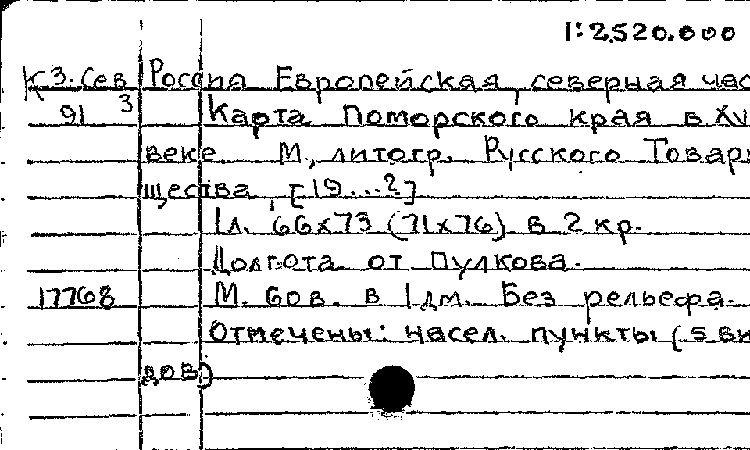 1:2520.000
К 3. Сев Россия Европейская, северная час
91 3 Карта Поморского края в XV
веке М., литогр. Русского Товари
щества, [19...?]
1 л. 66х73 (71х76) в 2 кр.
Долгота от Пулкова.
17768 М. 60в. в 1 дм. Без рельефа.
Отмечены: насел. пункты (5 ви
дов)